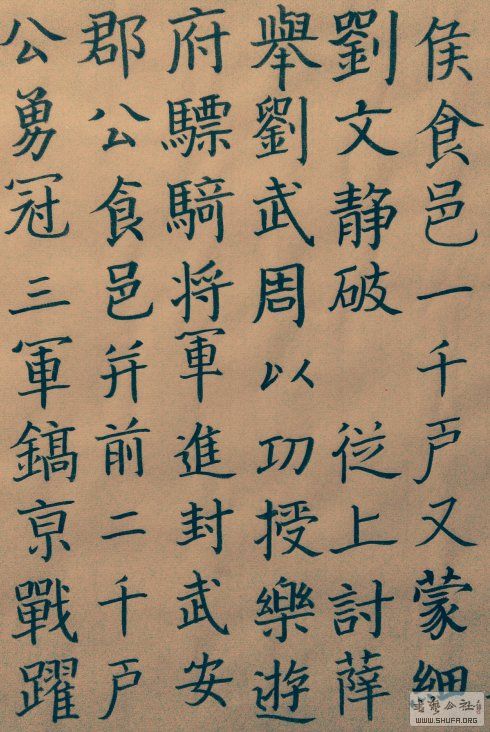 侯食邑一千戶又蒙細
劉文静破 従上討薛
舉劉武周以功授樂遊
府驃騎将軍進封武安
郡公食邑并前二千戶
公勇冠三軍鎬亰戰躍
WWW.SHUFA.ORG